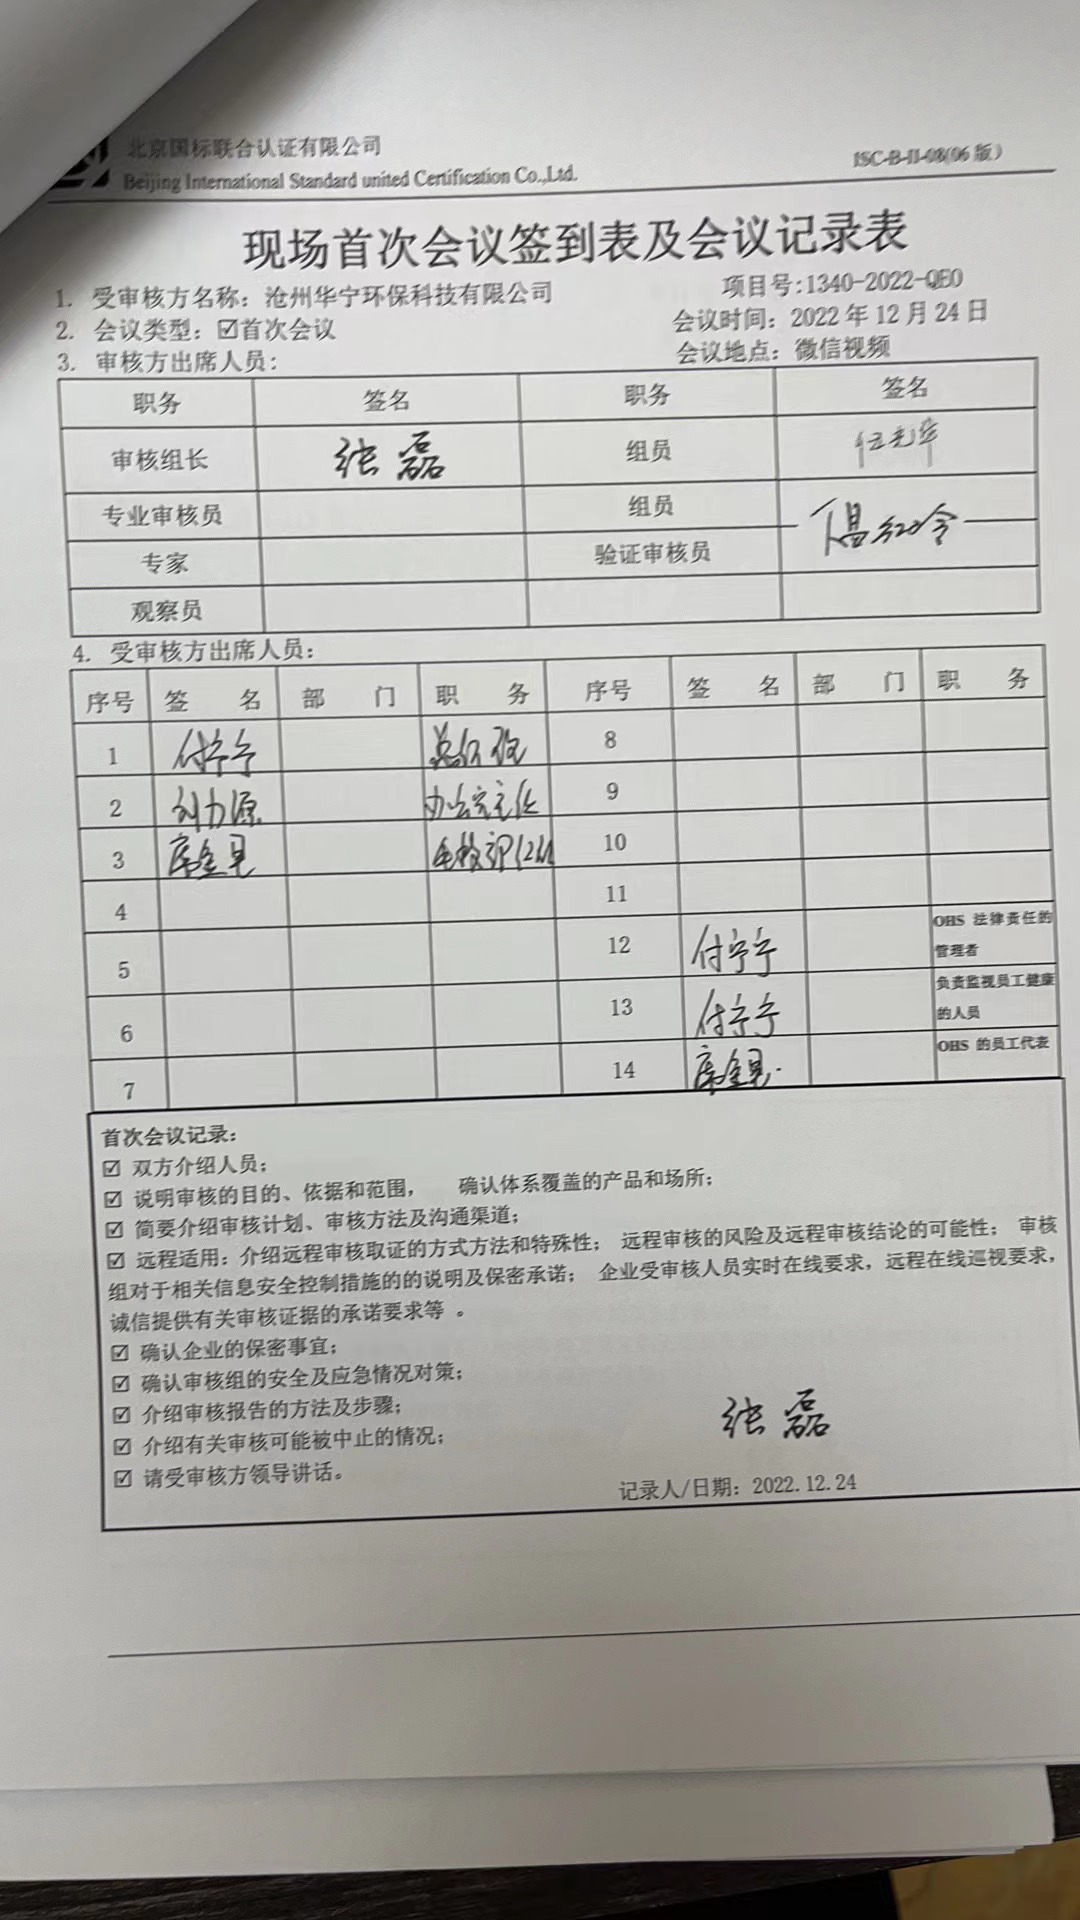 北京国标联合认证有限公司
Beijing International Standard united Certification Co.,Ltd.
ISC-B-II-08(06 版)
现场首次会议签到表及会议记录表
1. 受审核方名称：沧州华宁环保科技有限公司 项目号:1340-2022-QEO
2. 会议类型：☑首次会议 会议时间：2022 年 12 月 24 日
3. 审核方出席人员： 会议地点：微信视频
职务 签名 职务 签名
审核组长 张磊 组员 伍光华
专业审核员 组员
专家 验证审核员 温红令
观察员
4. 受审核方出席人员：
序号 签 名 部 门 职 务 序号 签 名 部 门 职 务
1 付宁宁 总经理 8
2 刘力源 办公室主任 9
3 10
4 11
5 12 付宁宁 OHS 法律责任的管理者
6 13 付宁宁 负责监视员工健康的人员
7 14 OHS 的员工代表
首次会议记录：
☑ 双方介绍人员；
☑ 说明审核的目的、依据和范围， 确认体系覆盖的产品和场所；
☑ 简要介绍审核计划、审核方法及沟通渠道；
☑ 远程适用：介绍远程审核取证的方式方法和特殊性； 远程审核的风险及远程审核结论的可能性； 审核
组对于相关信息安全控制措施的的说明及保密承诺； 企业受审核人员实时在线要求，远程在线巡视要求，
诚信提供有关审核证据的承诺要求等 。
☑ 确认企业的保密事宜；
☑ 确认审核组的安全及应急情况对策；
☑ 介绍审核报告的方法及步骤；
☑ 介绍有关审核可能被中止的情况；
☑ 请受审核方领导讲话。
张磊
记录人/日期：2022.12.24